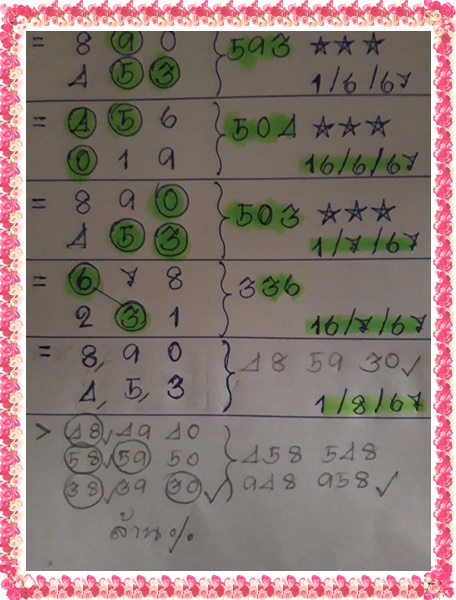 = 8 9 0 } 593 ☆☆☆
4 5 3 1/6/67
= 4 5 6 } 504 ☆☆☆
0 1 9 16/6/67
= 8 9 0 } 503 ☆☆☆
4 5 3 1/7/67
= 6 7 8 } 336
2 3 1 16/7/67
= 8, 9 0 } 48 59 30✓
4, 5, 3 1/8/67
> 48, 49 40
58, 59 50 } 458 548
38, 39 30 ✓ 948 958 ✓
ล้าน%